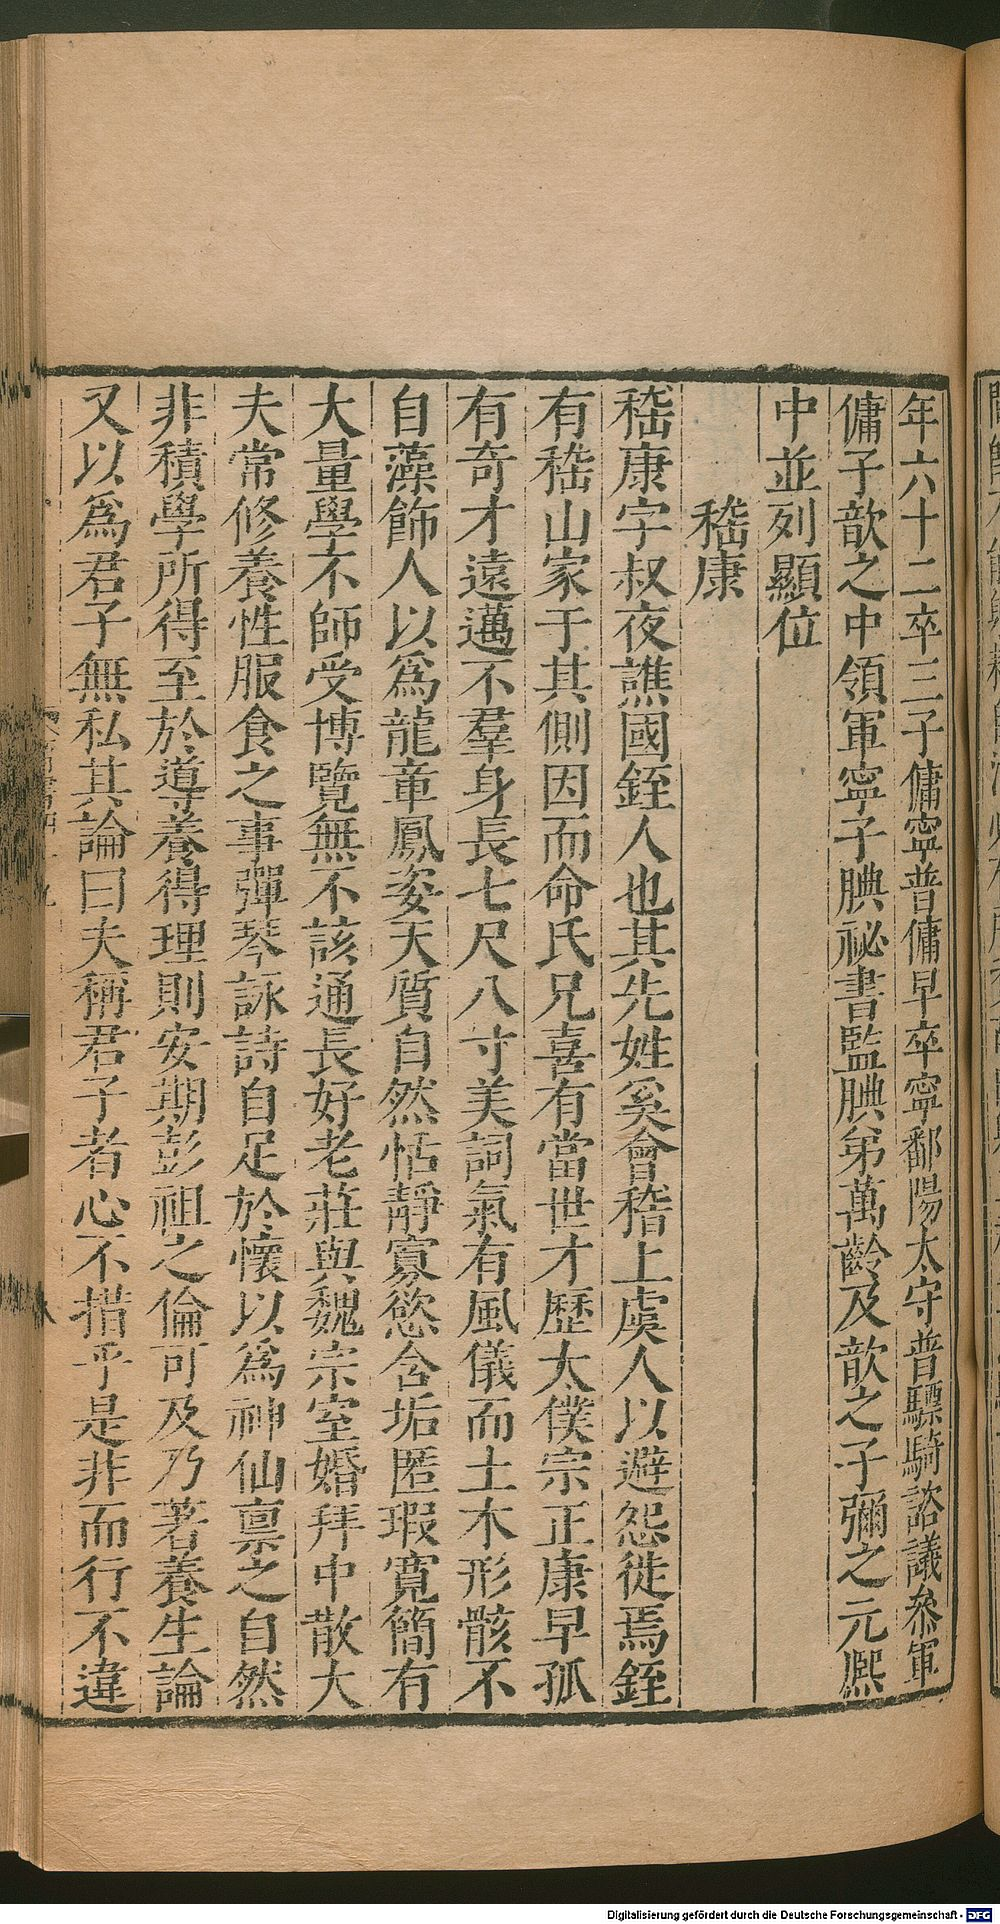 年六十二卒三子傭寧普傭早卒寧鄱陽太守普驃騎諮議叅軍
傭子歆之中領軍寧子腆祕書監腆弟萬齡及歆之子彌之元熈
中並列顯位
嵇康
嵇康字叔夜譙國銍人也其先姓奚會稽上虞人以避怨徙焉銍
有嵇山家于其側因而命氏兄喜有當世才歷太僕宗正康早孤
有奇才遠邁不羣身長七尺八寸美詞氣有風儀而土木形骸不
自藻飾人以爲龍章鳳姿天質自然恬靜寡慾含垢匿瑕寬簡有
大量學不師受博覽無不該通長好老莊與魏宗室婚拜中散大
夫常修養性服食之事彈琴詠詩自足於懷以爲神仙禀之自然
非積學所得至於導養得理則安期彭祖之倫可及乃著養生論
又以爲君子無私其論曰夫稱君子者心不措乎是非而行不違
Digitalisierung gefördert durch die Deutsche Forschungsgemeinschaft - DFG